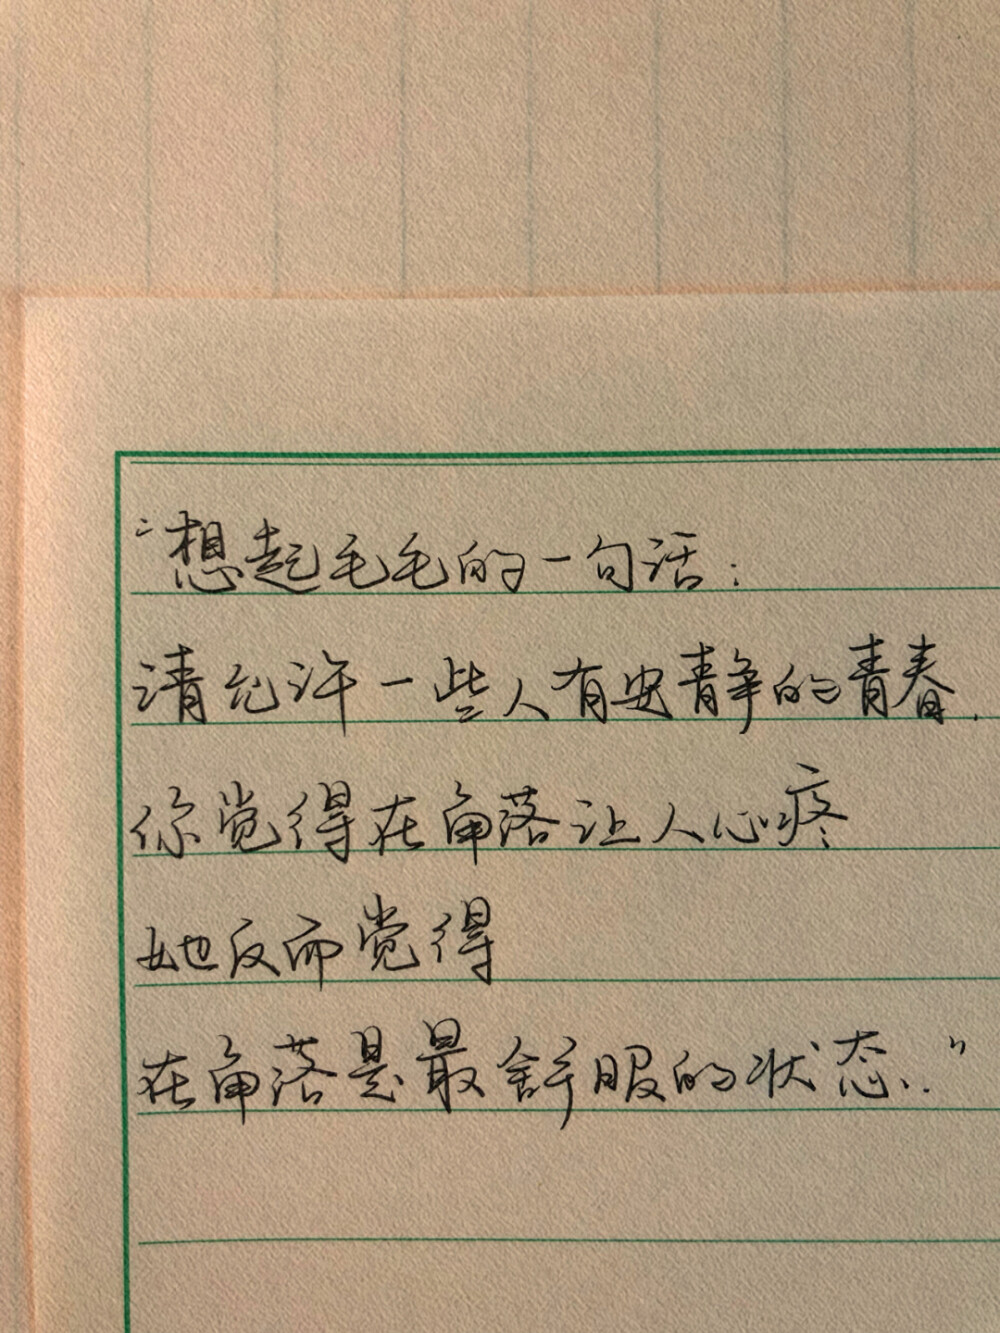 “想起毛毛的一句话：
请允许一些人有安静的青春.
你觉得在角落让人心疼
她反而觉得
在角落是最舒服的状态..”